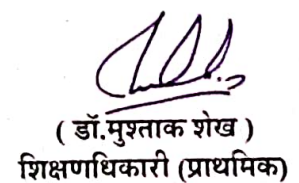 ( डॉ.मुश्ताक शेख )
शिक्षणधिकारी (प्राथमिक)